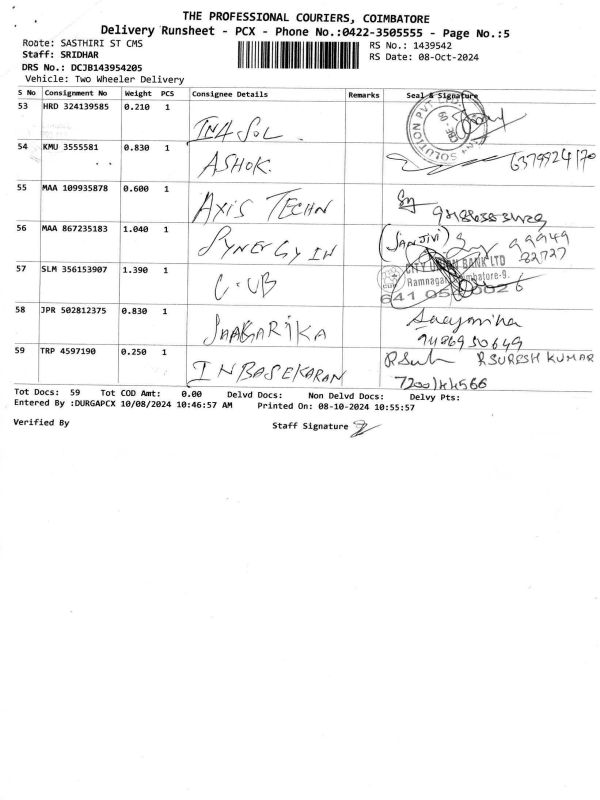 THE PROFESSIONAL COURIERS, COIMBATORE
Delivery Runsheet - PCX - Phone No.:0422-3505555 - Page No.:5
Route: SASTHIRI ST CMS RS No.: 1439542
Staff: SRIDHAR RS Date: 08-Oct-2024
DRS No.: DCJB143954205
Vehicle: Two Wheeler Delivery
S No Consignment No Weight PCS Consignee Details Remarks Seal & Signature
53 HRD 324139585 0.210 1
54 KMU 3555581 0.830 1 ASHOK.
55 MAA 109935878 0.600 1 AXIS TECHN
56 MAA 867235183 1.040 1 SYNERGY IN (SANJIVI) 99949
57 SLM 356153907 1.390 1 C.UB CITY UNION BANK LTD
Ramnagar, Coimbatore-9.
58 JPR 502812375 0.830 1 SAAGARIKA
9486930649
59 TRP 4597190 0.250 1 INBASEKARAN R SURESH KUMAR
7200144566
Tot Docs: 59 Tot COD Amt: 0.00 Delvd Docs: Non Delvd Docs: Delvy Pts:
Entered By :DURGAPCX 10/08/2024 10:46:57 AM Printed On: 08-10-2024 10:55:57
Verified By Staff Signature